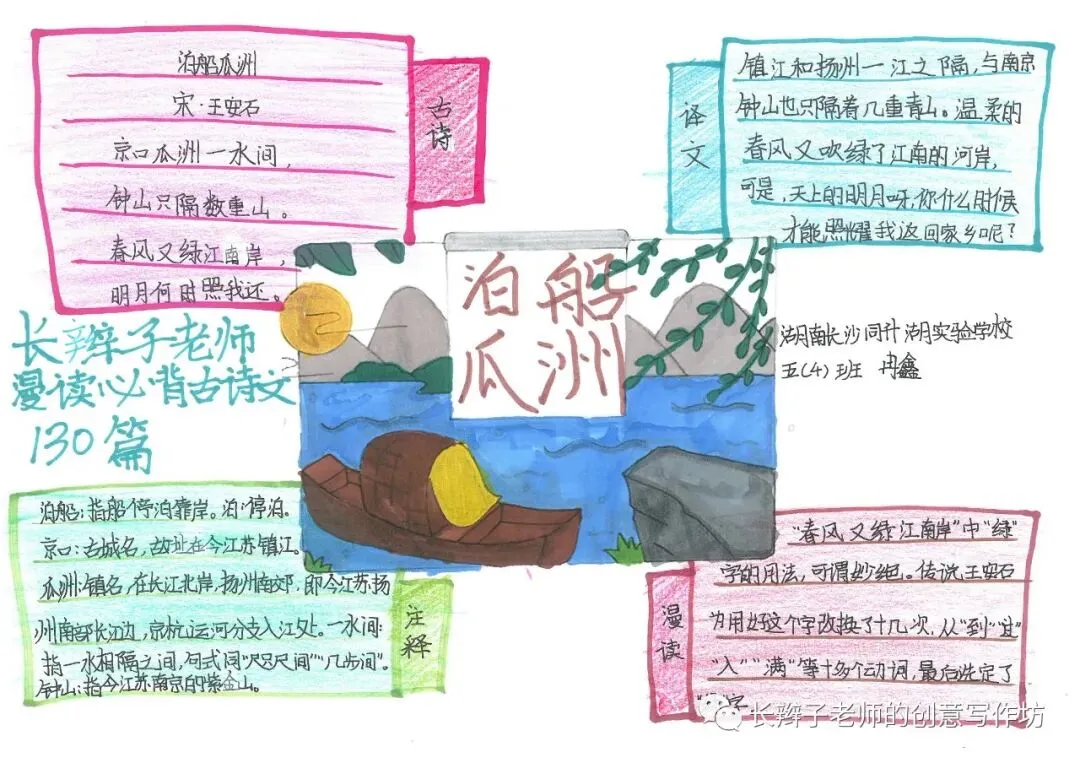 泊船瓜洲
宋·王安石
京口瓜洲一水间，
钟山只隔数重山。
春风又绿江南岸，
明月何时照我还。
古诗
译文
镇江和扬州一江之隔，与南京
钟山也只隔着几重青山。温柔的
春风又吹绿了江南的河岸，
可是，天上的明月呀，你什么时候
才能照耀我返回家乡呢？
泊船
瓜洲
长辫子老师
漫读必背古诗文
130篇
湖南长沙同升湖实验学校
五(4)班 冉鑫
泊船：指船停泊靠岸。泊：停泊。
京口：古城名，故址在今江苏镇江。
瓜洲：镇名，在长江北岸，扬州南郊，即今江苏扬
州南部长江边，京杭运河分支入江处。一水间：
指一水相隔之间，句式同“咫尺间”“几步间”。
钟山：指今江苏南京的紫金山。
注释
漫读
“春风又绿江南岸”中“绿”
字的用法，可谓妙绝。传说王安石
为用好这个字改换了十几次，从“到”“过”
“入”“满”等十多个动词，最后选定了
字。
长辫子老师的创意写作坊